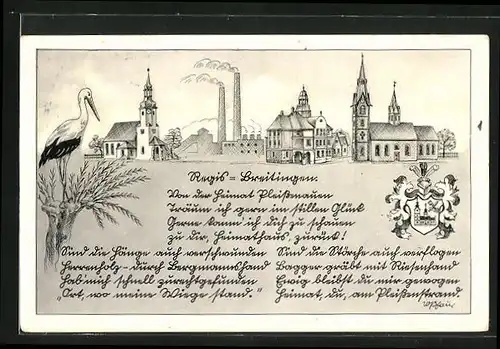 Regis = Breitingen.
Von der Heimat Pleißnauen
Träum ich gern im stillen Glück
Gerne kann ich dich zu schauen
zu dir, Heimathaus, zurück!
Sind die Hänge auch verschwunden
Herrenholz - durch Bergmannshand
Hab' mich schnell zurechtgefunden
"Ort, wo meine Wiege stand."
Sind die Störche auch verflogen
Bagger gräbt mit Riesenhand
Ewig bleibst du mir gewogen
Heimat, du, am Pleißenstrand.